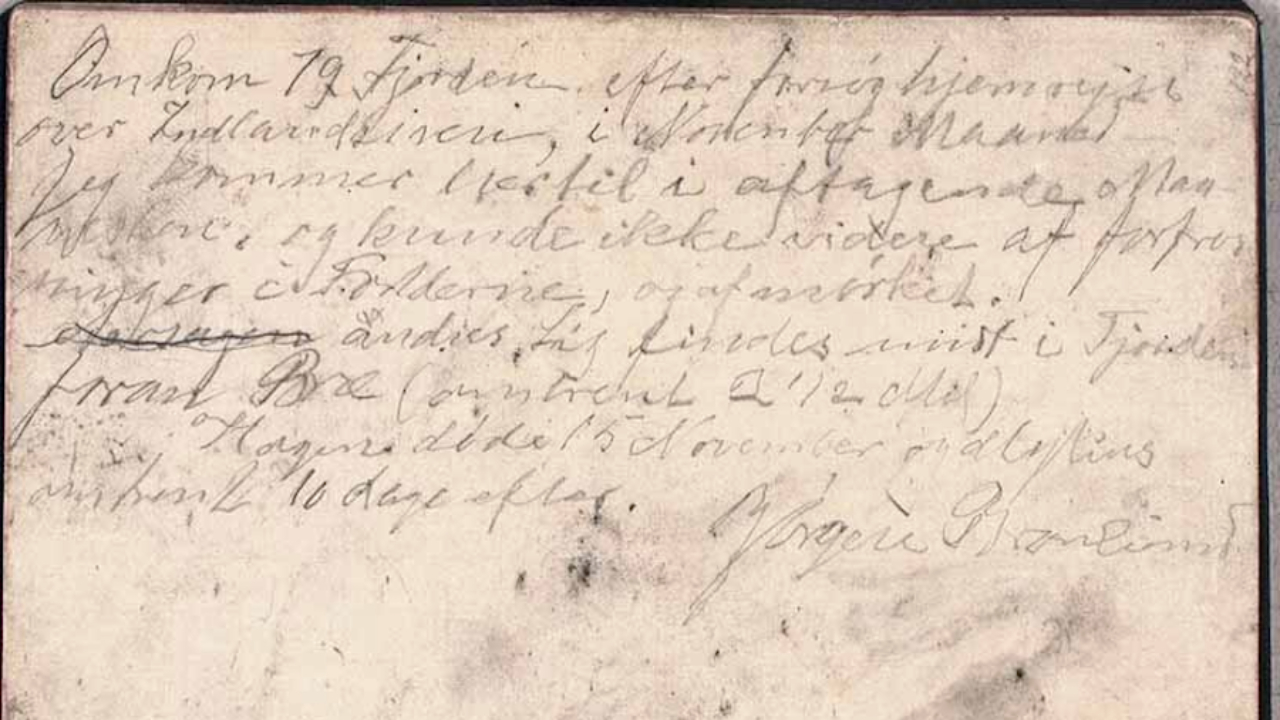 Omkom 79 Fjorden efter forsög hjemrejse
over Indlandsisen, i November Maaned
Jeg kommer hertil i aftagende Maa
neskin, og kunde ikke videre af forfros
ninger i Födderne, og af mörket.
andres Lig findes midt i Fjorden
foran Bræ (omtrent 2 1/2 Mil)
Hagen döde 15 November og Mylius
omtrent 10 dage efter.
Jörgen Brönlund